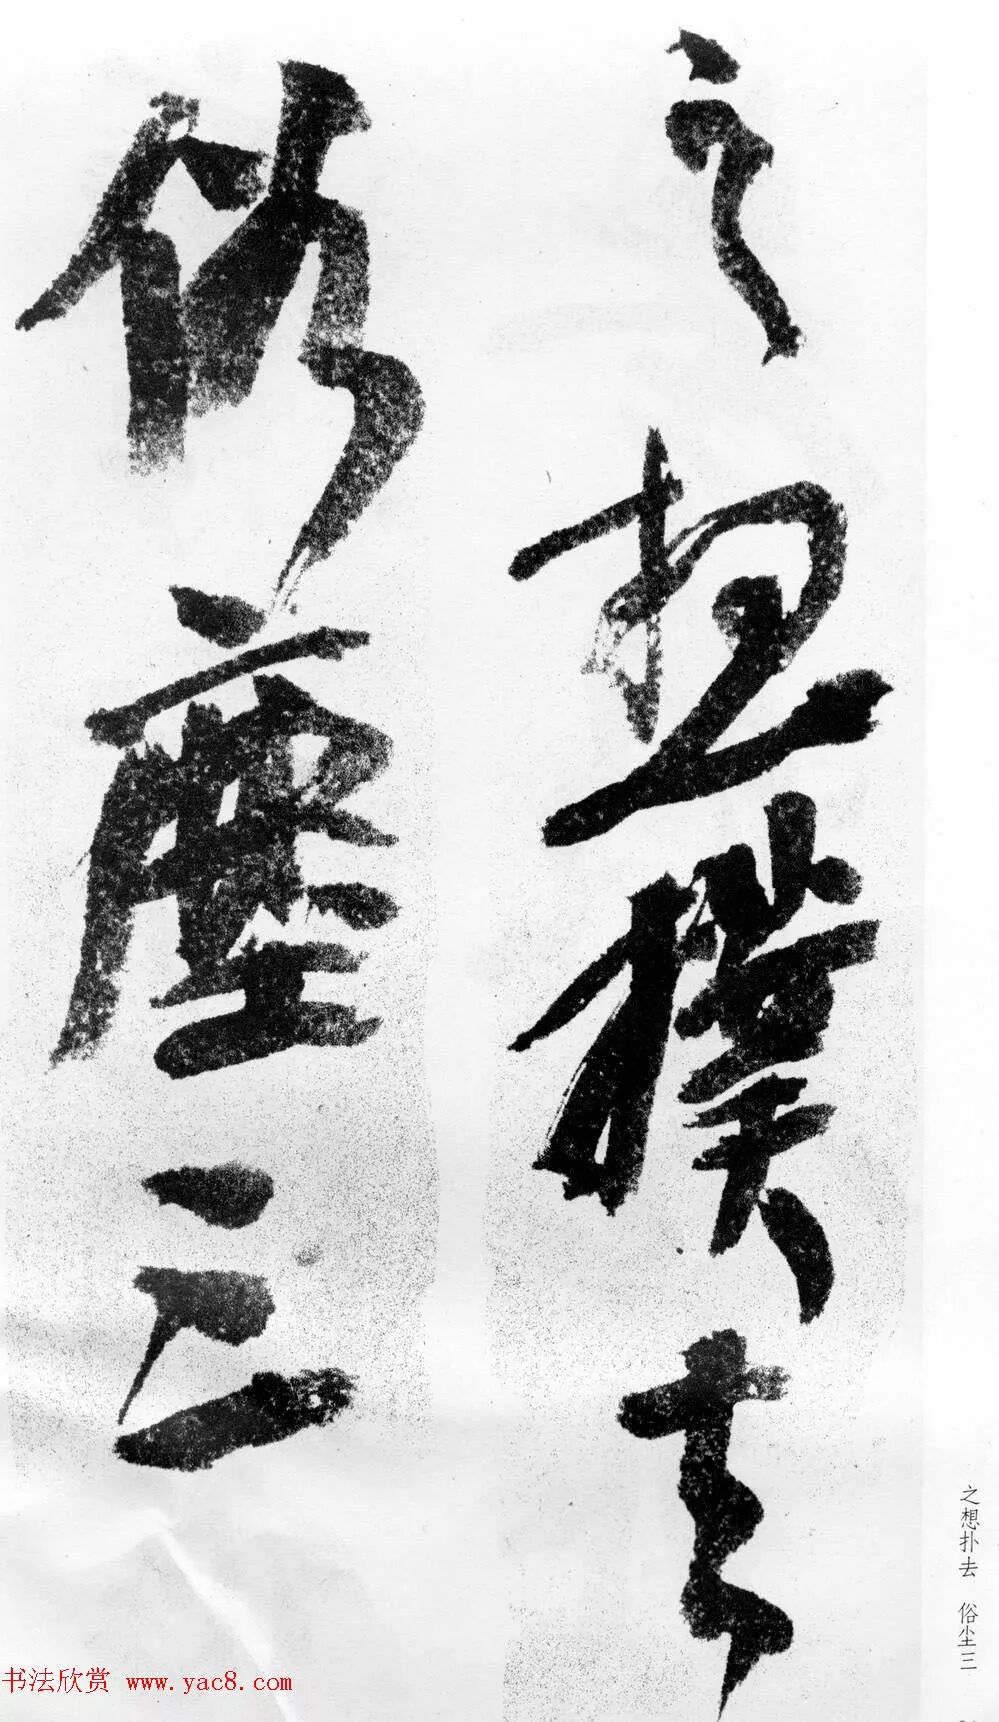 之想撲去
俗塵三
之想扑去 俗尘三
书法欣赏 www.yac8.com